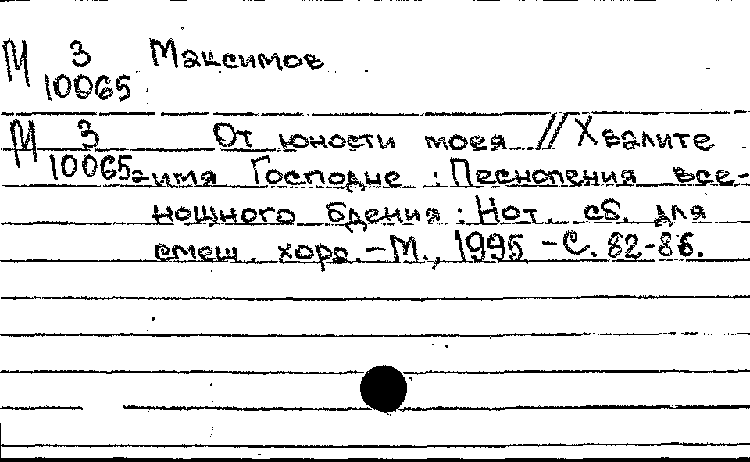 М 3 Максимов
10065
М 3 От юности моея // Хвалите
10065а имя Господне : Песнопения все-
нощного бдения : Нот. сб. для
смеш. хора. - М., 1995 - С. 82-86.